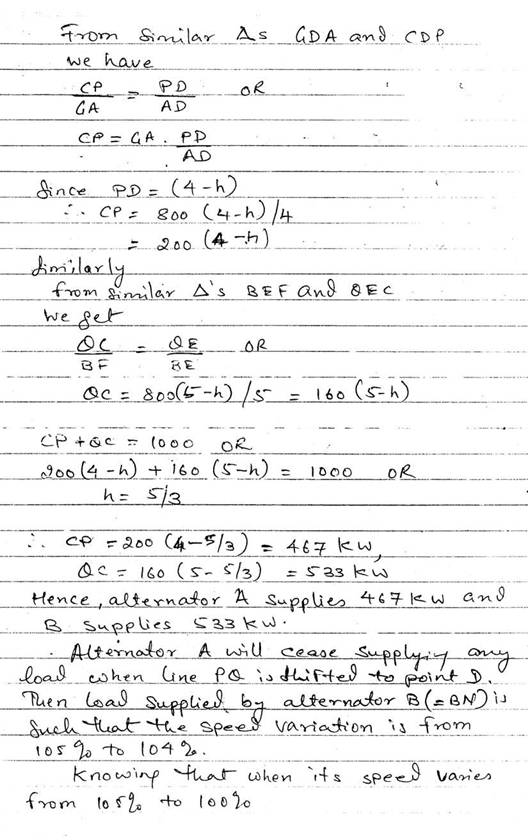 From Similar Δs GDA and CDP
we have
CP/GA = PD/AD OR
CP = GA . PD/AD
Since PD = (4-h)
∴ CP = 800 (4-h)/4
= 200 (4-h)
Similarly
from similar Δ's BEF and QEC
we get
QC/BF = QE/BE OR
QC = 800(5-h)/5 = 160 (5-h)
CP + QC = 1000 OR
200(4-h) + 160 (5-h) = 1000 OR
h = 5/3
∴ CP = 200 (4-5/3) = 467 KW,
QC = 160 (5-5/3) = 533 KW
Hence, alternator A supplies 467 KW and
B supplies 533 KW.
. Alternator A will cease supplying any
load when line PQ is shifted to point D.
Then load supplied by alternator B (=BN) is
Such that the speed variation is from
105% to 104%.
Knowing that when its speed varies
from 105% to 100%